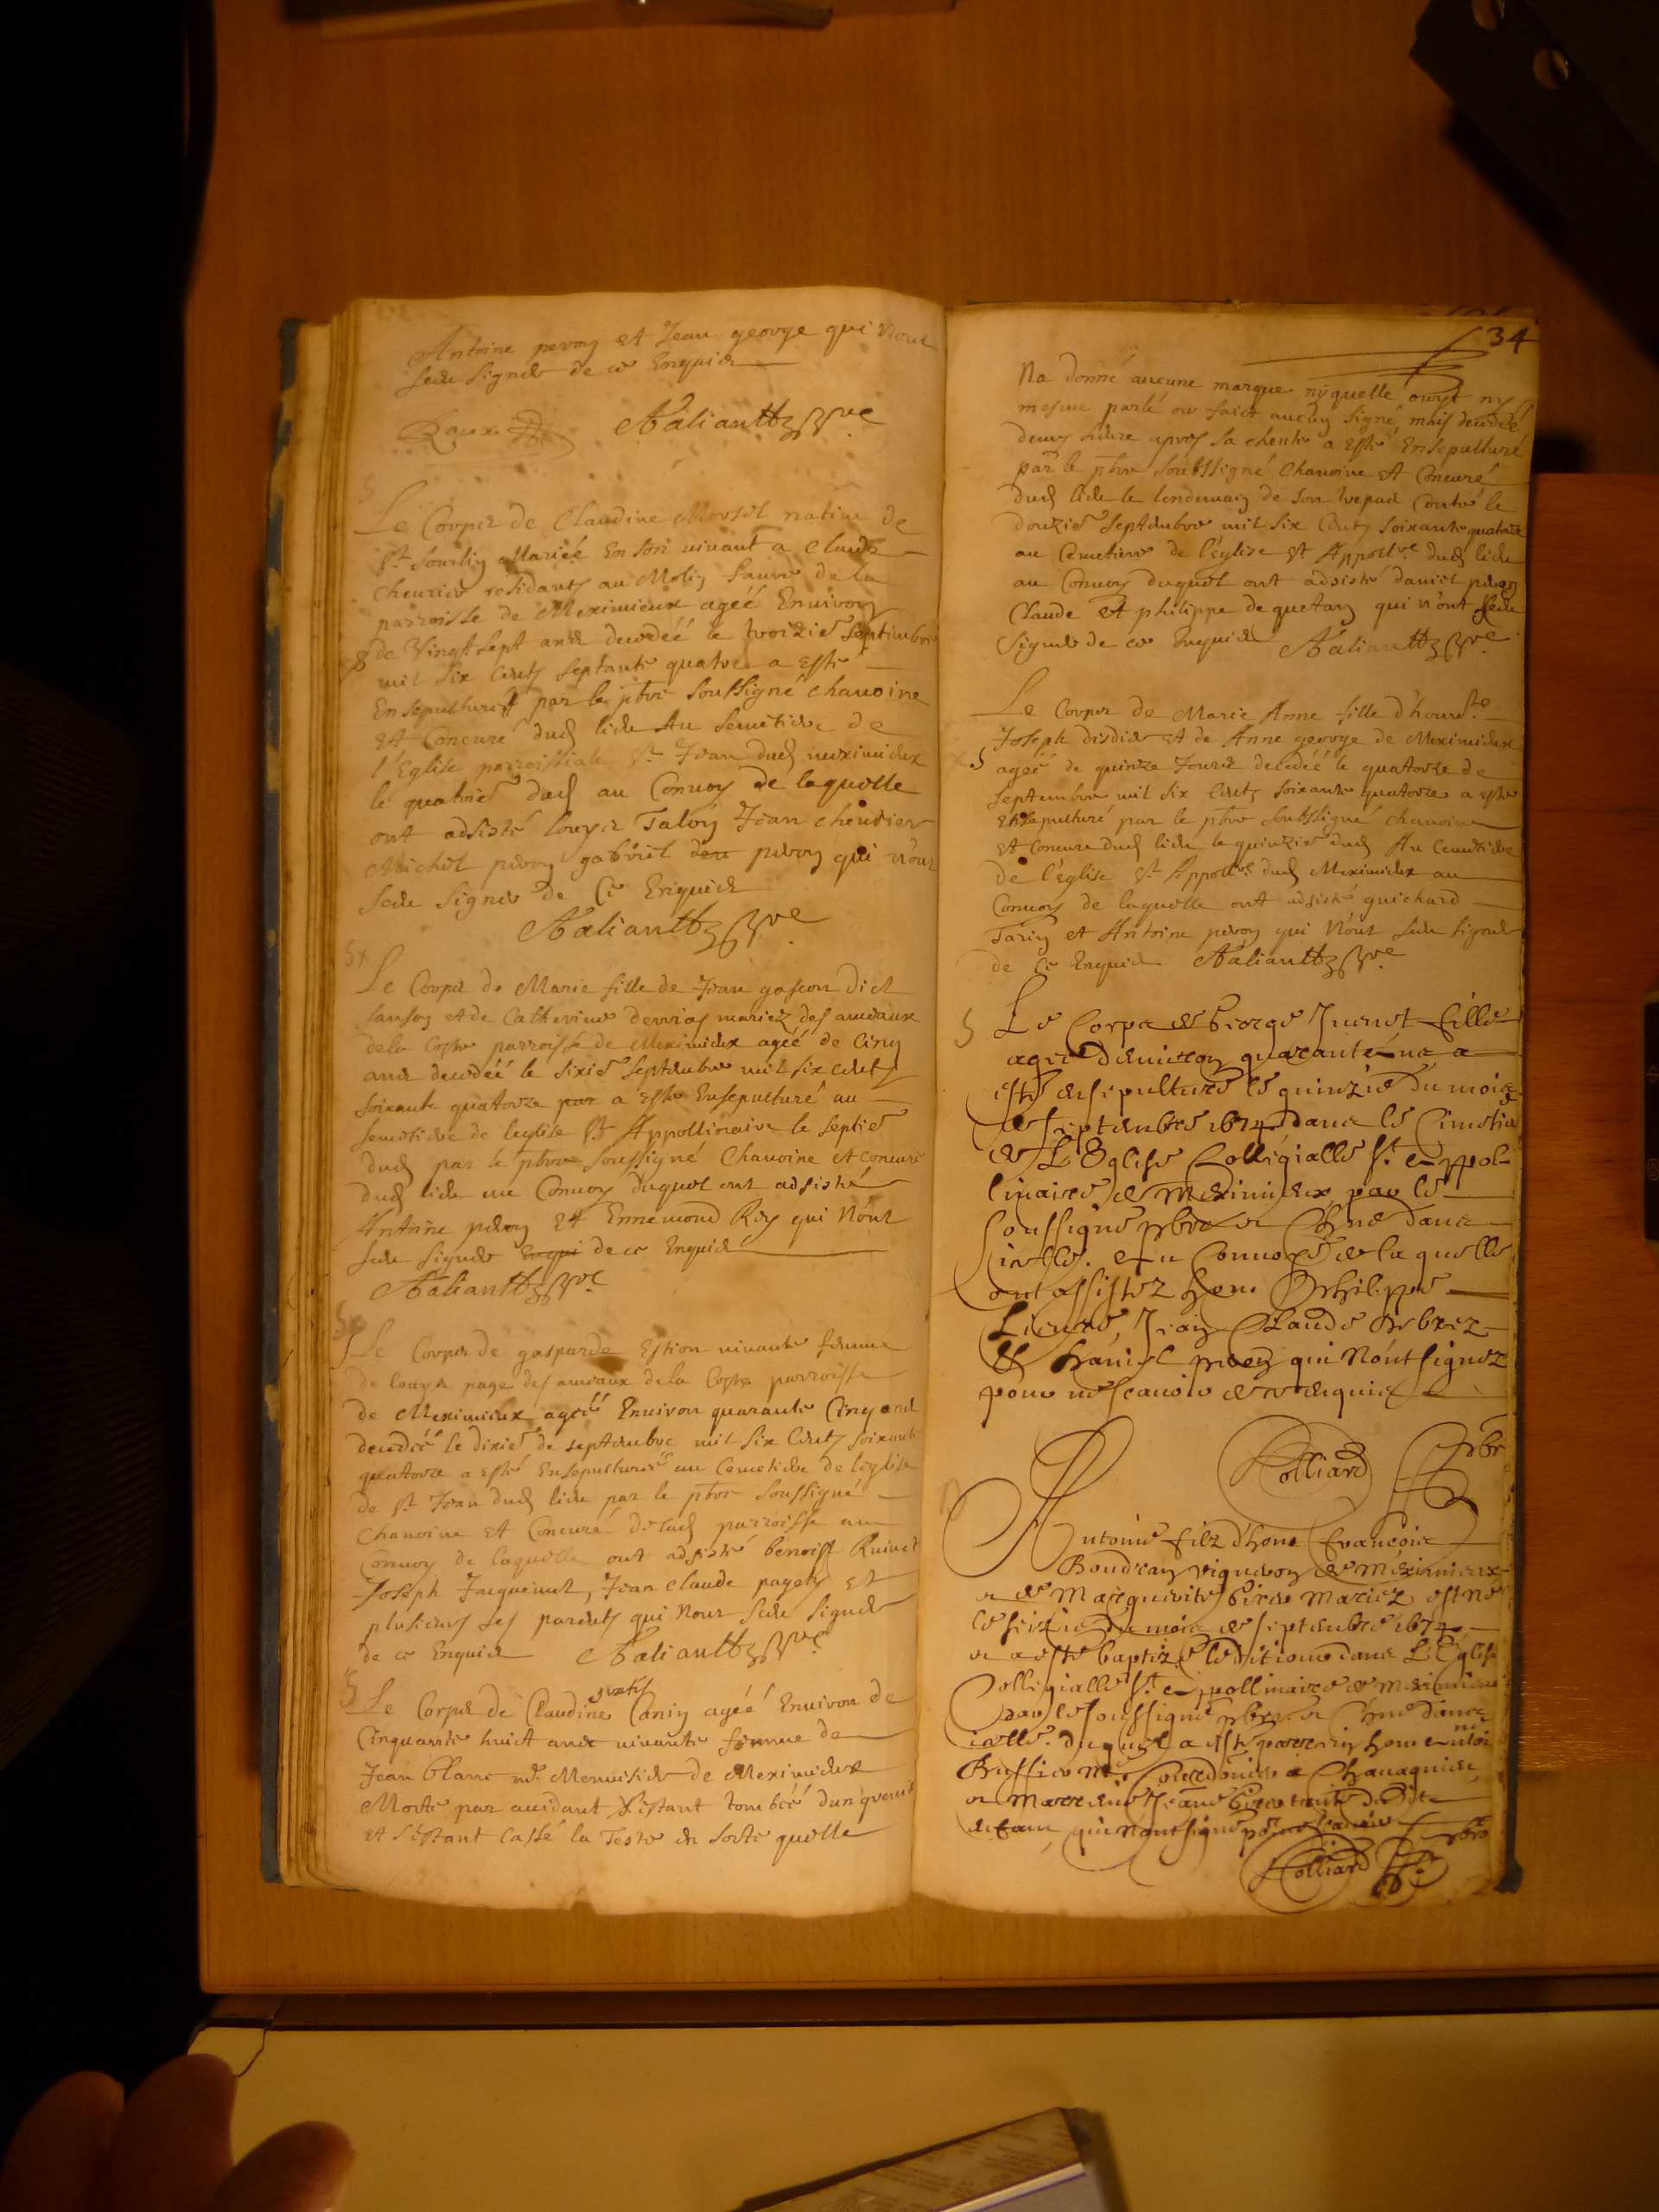 Antoine peron et Jean george qui n'ont
sceu signer de ce Enquis
Le Corps de Claudine Morsel native de
St Sourlin Mariée En son vivant a Claude
Chevrier residants au Molin Fauvre de la
parroisse de Meximieux agéé Environ
de Vingt sept ans decedéé le troizie septembre
mil six cents septante quatre a esté
Ensepulturéé par le pbre soussigné chanoine
et Concuré dud lieu Au Semetiere de
l'Eglise parroissiale St Jean dud meximieux
le quatrie dud au Convoy de laquelle
ont adsisté Louys Talon Jean chevrier
Michel peron gabriel peron qui n'ont
sceu signer de Ce Enquis
Le Corps de Marie fille de Jean gascon dict
sanson et de Catherine mariez des ameaux
dela Coste parroisse de Meximieux agéé de Cinq
ans decedéé le sixie septembre mil six cents
soixante quatorze par a esté Ensepulturé au
semetiere de leglise St Appollinaire le septie
dud par le pbre soussigné Chanoine et Concuré
dud lieu au Convoy duquel ont adsisté
Antoine peron et Ennemond Rey qui n'ont
sceu signer Enqui de ce Enquis
Le Corps de gasparde Estion vivante femme
de Louys page des ameaux dela Coste parroisse
de Meximieux agéé Environ quarante Cinq ans
decedéé le dixie de septembre mil six Cents soixante
quatorze a esté Ensepulturéé au Cemetiere de leglise
de St Jean dud lieu par le pbre soussigné
Chanoine et Concuré de lad parroisse au
Convoy de laquelle ont adsisté benoist
Joseph Jacquemet, Jean claude et
plusieurs ses parents qui n'ont sceu signer
de ce Enquis
Le Corps de Claudine Canin agéé Environ de
Cinquante huict ans vivante femme de
Jean blanc me Menuisier de Meximieux
Morte par accidant s'estant tombéé d'un
et s'estant cassé la Teste en sorte quelle
34
Na donné aucune marque ny quelle ouyt ny
mesme parlé ou faict aucun signe, mais decedéé
deux heure apres sa cheute a esté Ensepulturé
par le pbre soubssigné Chanoine et Concuré
dud lieu le lendemain de son trepas Conté le
douzie septembre mil six Cents soixante quatorze
au Cemetiere de l'église St Appollre dud lieu
au Convoy duquel ont adsisté daniel peron
Claude et philippe de quetan qui n'ont sceu
signer de ce Enquis
Le Corps de Marie Anne fille d'honneste
Joseph disdier et de Anne george de Meximieux
agéé de quinze Jours decedéé le quatorze de
septembre mil six Cents soixante quatorze a esté
Ensepulturé par le pbre soubssigné chanoine
et Concuré dud lieu le quinzie dud Au Cemetiere
de l'église St Appollre dud Meximieux au
Convoy de laquelle ont adsisté guichard
Tarin et Antoine peron qui n'ont sceu signer
de Ce Enquis
Le Corps de George fille
agee denviron quarante ans a
esté ensepulturé le quinzie du mois
de septembre 1674 dans le Cimetiere
de L'Eglise Collégialle St Appol-
linaire de Meximieux par le
soussigné pbre et Chne dans
icelle. Au Convoy de la quelle
ont assistez hon Philippe
Jean Claude
Et Daniel peron qui n'ont signez
pour ne scavoir de ce enquis
Rolliard pbre
Antoine filz d'hon François
Boudran vigneron de Meximieux
et de Marguerite mariez est né
le seizie du mois de septembre 1674
et a esté baptizé dans L'Eglise
Collegialle St Appollinaire de Meximieux
par le soussigné pbre et Chne dans
icelle. duquel a esté parrein hon
Cordonnier a
et marreine Jeane tante dudit
enfant, qui n'ont signé pour ne scavoir
Rolliard pbre